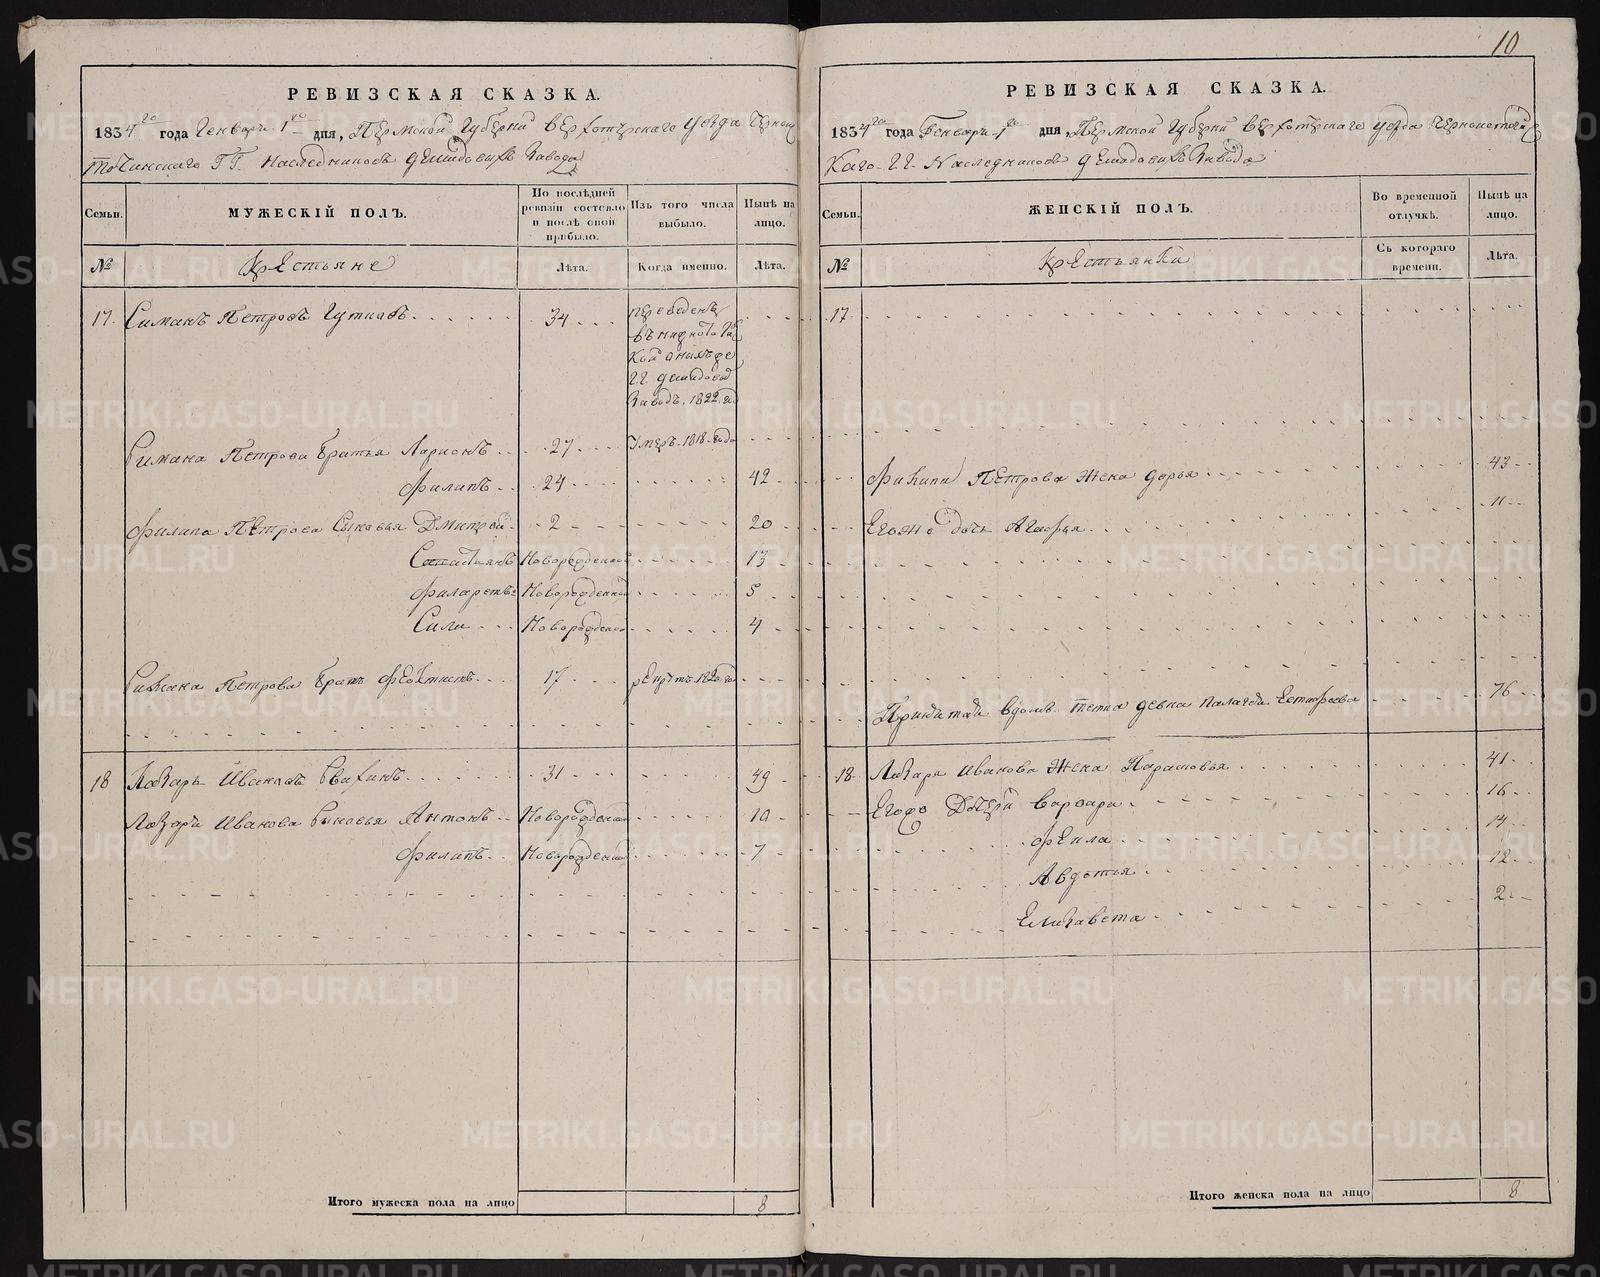 10
РЕВИЗСКАЯ СКАЗКА.
1834го года Генваря 1го дня, Пермской Губерніи Верхотурскаго уезда Черно
источинскаго ГГ. Наследниковъ Демидовыхъ Завода
Семьи.
МУЖЕСКІЙ ПОЛЪ.
По послѣдней ревизіи состояло и послѣ оной прибыло.
Изъ того числа выбыло.
Нынѣ на лицо.
№
Крестьяне
Лѣта.
Когда именно.
Лѣта.
17. Симанъ Петровъ 34
переведенъ
въ
ГГ. Демидовых
Заводъ. 1822. го
Симана Петрова братья Ларионъ 27 Умеръ 1818 года
Филипъ 24 42
Филипа Петрова Сыновья Дмитрей 2 20
Новорожденной 13
Филаретъ Новорожденной 5
Сила Новорожденной 4
Симана Петрова братъ Феоктистъ 17
18 Лазарь Ивановъ 31 49
Лазаря Иванова Сыновья Антонъ Новорожденной 10
Филипъ Новорожденной 7
Итого мужеска пола на лицо 8
РЕВИЗСКАЯ СКАЗКА.
1834го года Генваря 1го дня, Пермской Губерніи Верхотурскаго уезда Черноисточинс
каго ГГ. Наследниковъ Демидовыхъ Завода
Семьи.
ЖЕНСКІЙ ПОЛЪ.
Во временной отлучкѣ.
Нынѣ на лицо.
№
Крестьянки
Съ котораго времени.
Лѣта.
17.
Филипа Петрова Жена Дарья 43
Егоже дочь Агафья 11
девка 76
18. Лазаря Иванова Жена Парасковья 41
Егожъ Дочери Варвара 16
Фекла 14
Авдотья 12
Елизавета 2
Итого женска пола на лицо 8